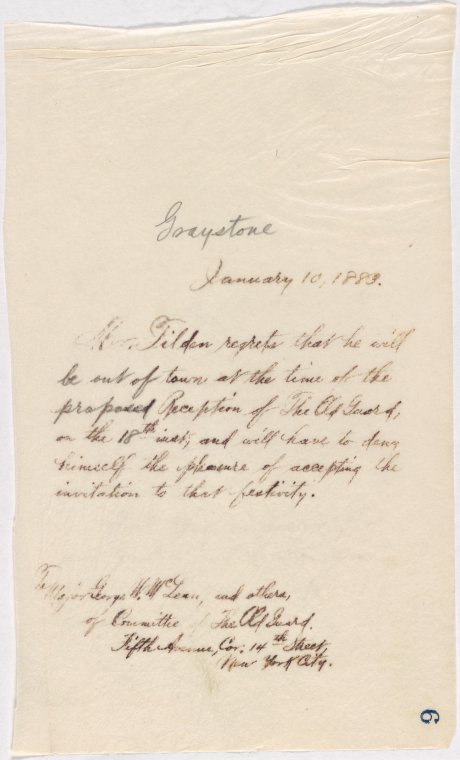 Graystone
January 10, 1883.
Mr. Tilden regrets that he will
be out of town at the time of the
proposed Reception of The Old Guard,
on the 18th inst, and will have to deny
himself the pleasure of accepting the
invitation to that festivity.
To
Major George W. McLean, and others,
of Committee of The Old Guard.
Fifth Avenue, Cor. 14th Street,
New York City.
6